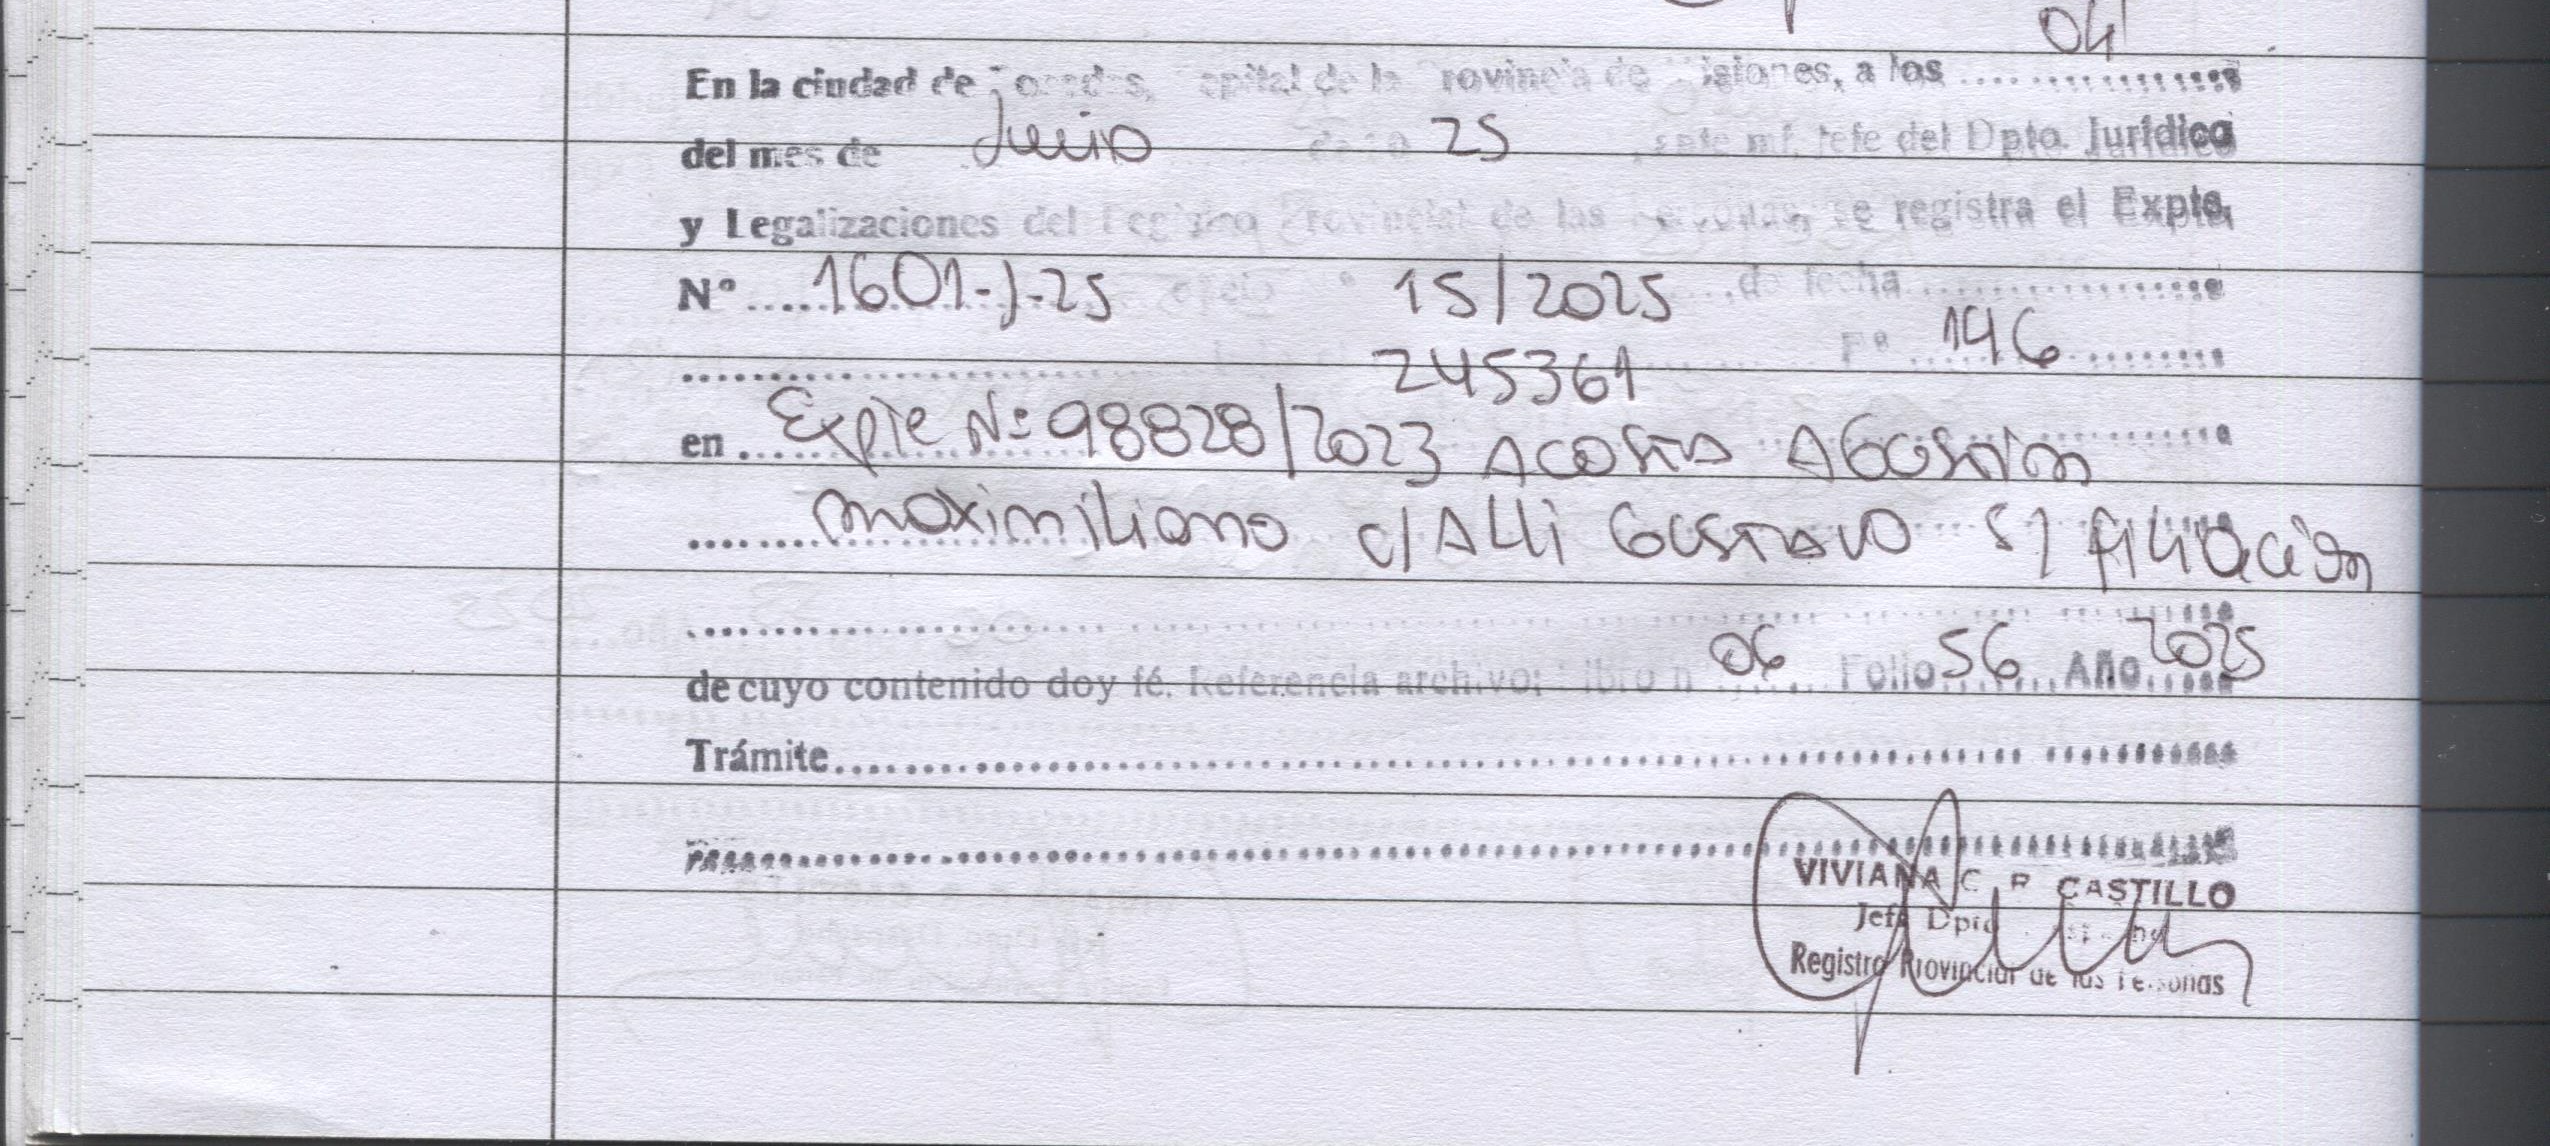 04
En la ciudad de Posadas, Capital de la Provincia de Misiones, a los ....................
del mes de Junio de 20 25 , ante mí, Jefe del Dpto. Jurídico
y Legalizaciones del Registro Provincial de las Personas, se registra el Expte.
Nº ....1601-J-25 Oficio Nº 15/2025 ....de fecha....................
245361 Fº 146
en .... Expte Nº 98828/2023 ACOSTA AGUSTIN
maximiliano c/ ALLI GUSTAVO S/ filiación
de cuyo contenido doy fé. Referencia archivo: Libro n 06 Folio 56 Año 2025
Trámite....................
VIVIANA C. R. CASTILLO
Jefe Dpto
Registro Provincial de las Personas